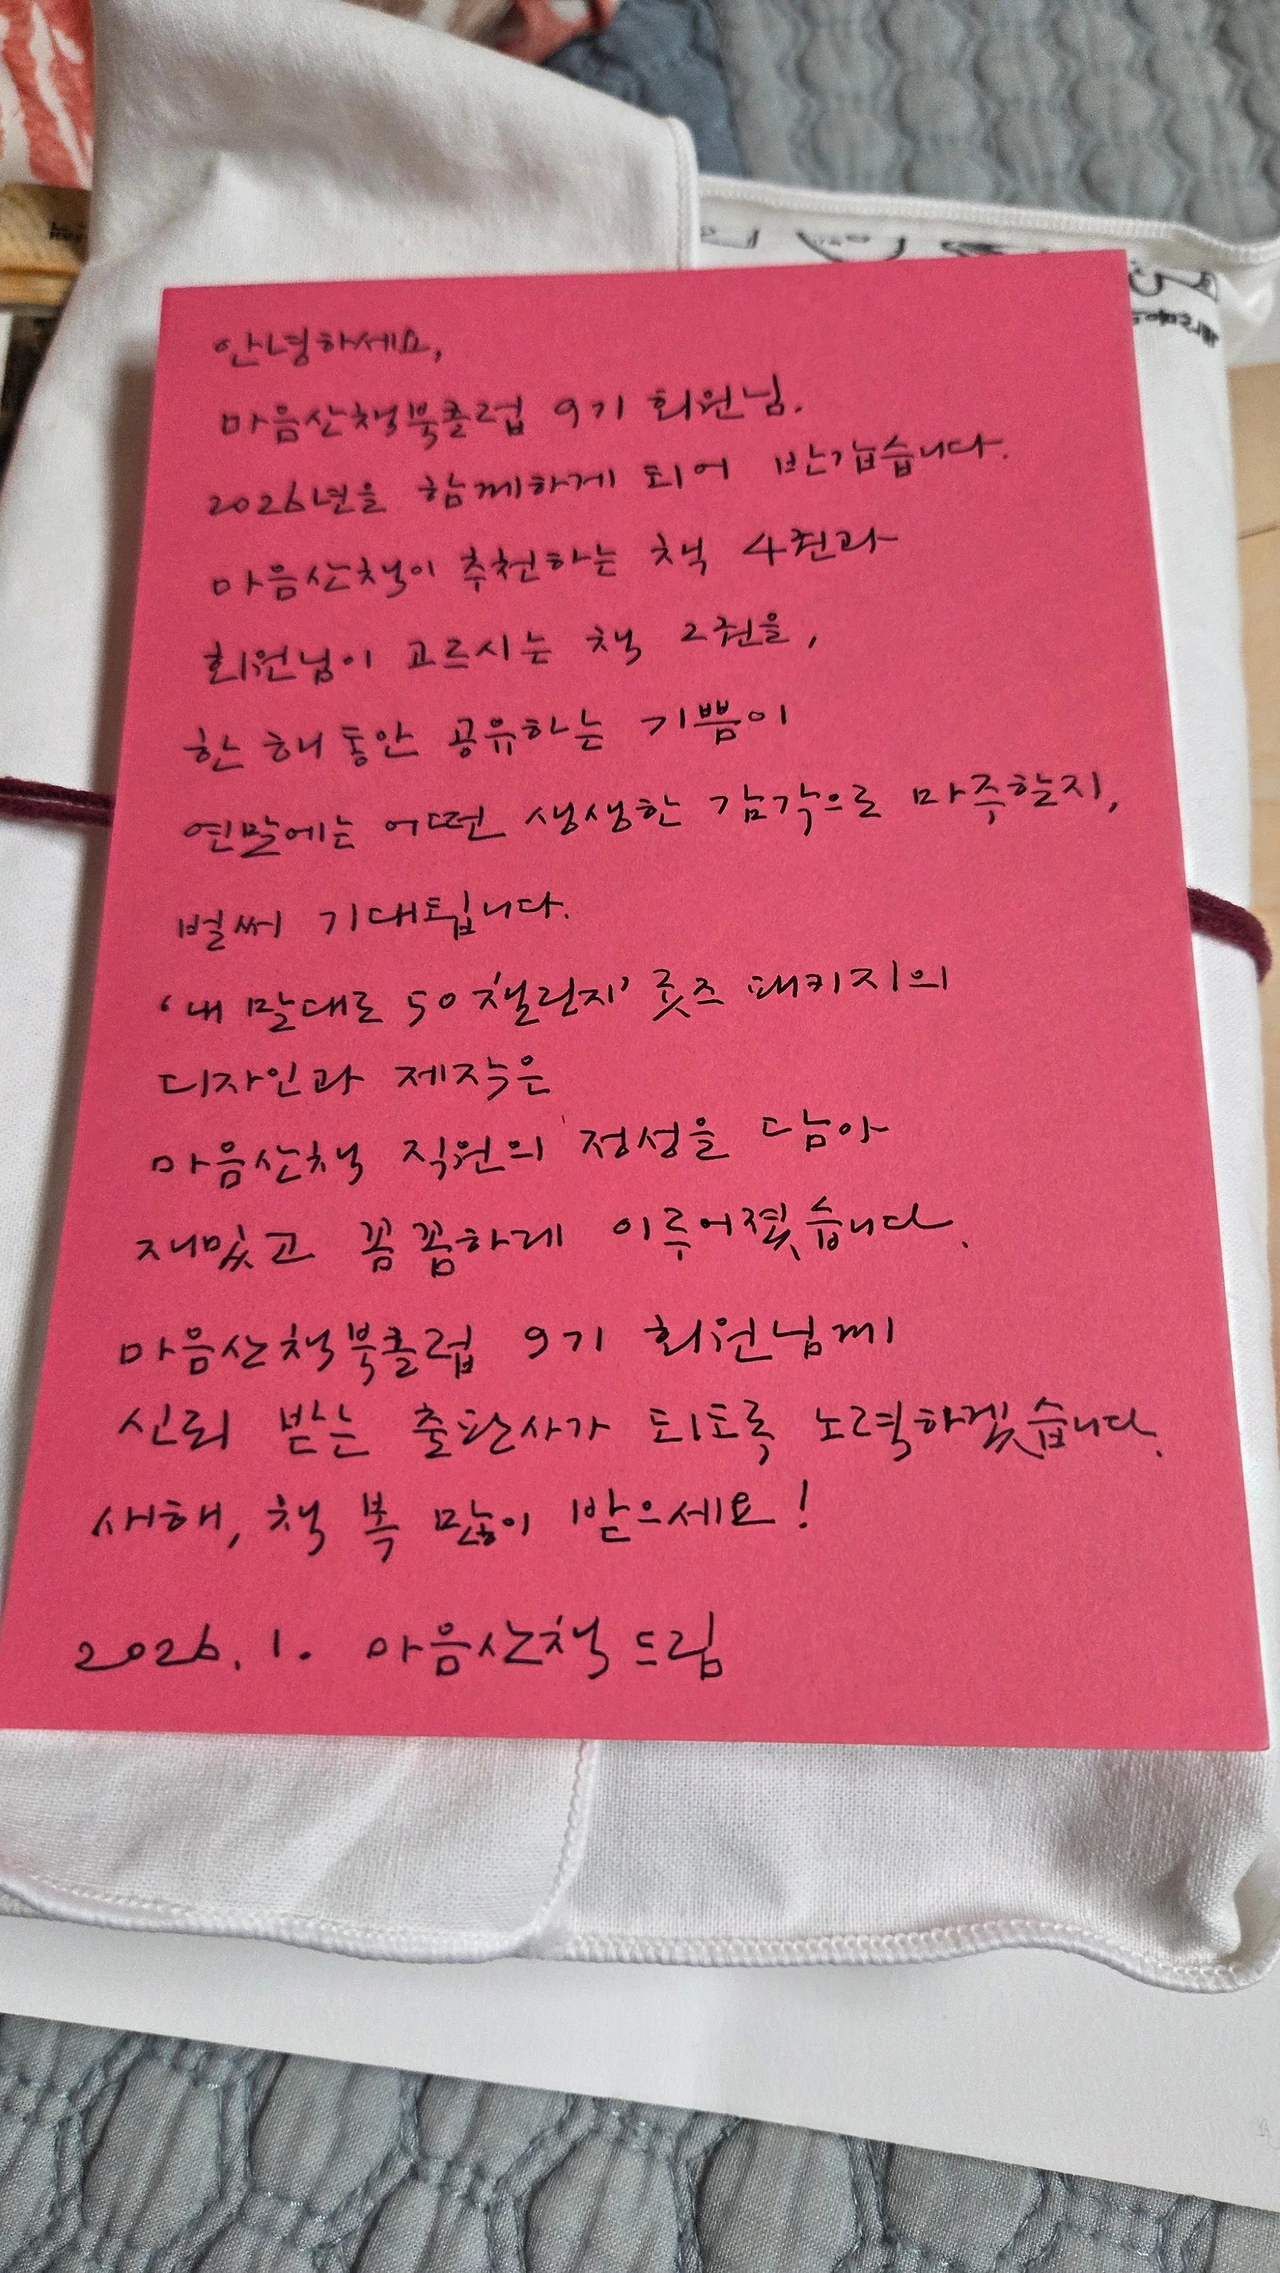 안녕하세요,
마음산책북클럽 9기 회원님.
2026년을 함께하게 되어 반갑습니다.
마음산책이 추천하는 책 4권과
회원님이 고르시는 책 2권을,
한 해 동안 공유하는 기쁨이
연말에는 어떤 생생한 감각으로 마주할지,
벌써 기대됩니다.
'내 말대로 50 챌린지' 굿즈 패키지의
디자인과 제작은
마음산책 직원의 정성을 담아
재밌고 꼼꼼하게 이루어졌습니다.
마음산책북클럽 9기 회원님께
신뢰 받는 출판사가 되도록 노력하겠습니다.
새해, 책 복 많이 받으세요!
2026. 1. 마음산책 드림